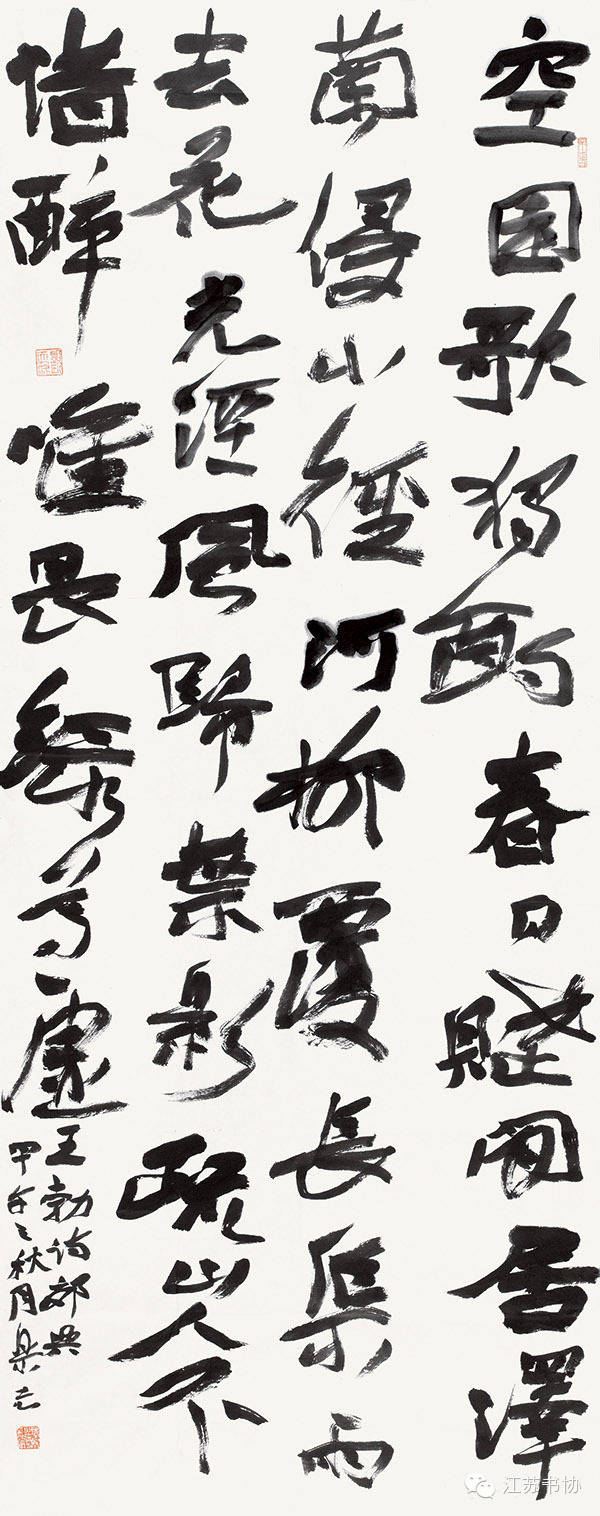 空園歌獨酌春日賦閒居澤
蘭侵小徑河柳覆長渠雨
去花光溼風歸葉影疏山人不
惜醉唯畏綠尊虛
王勃詩郊興
甲午之秋月樂
江苏书协